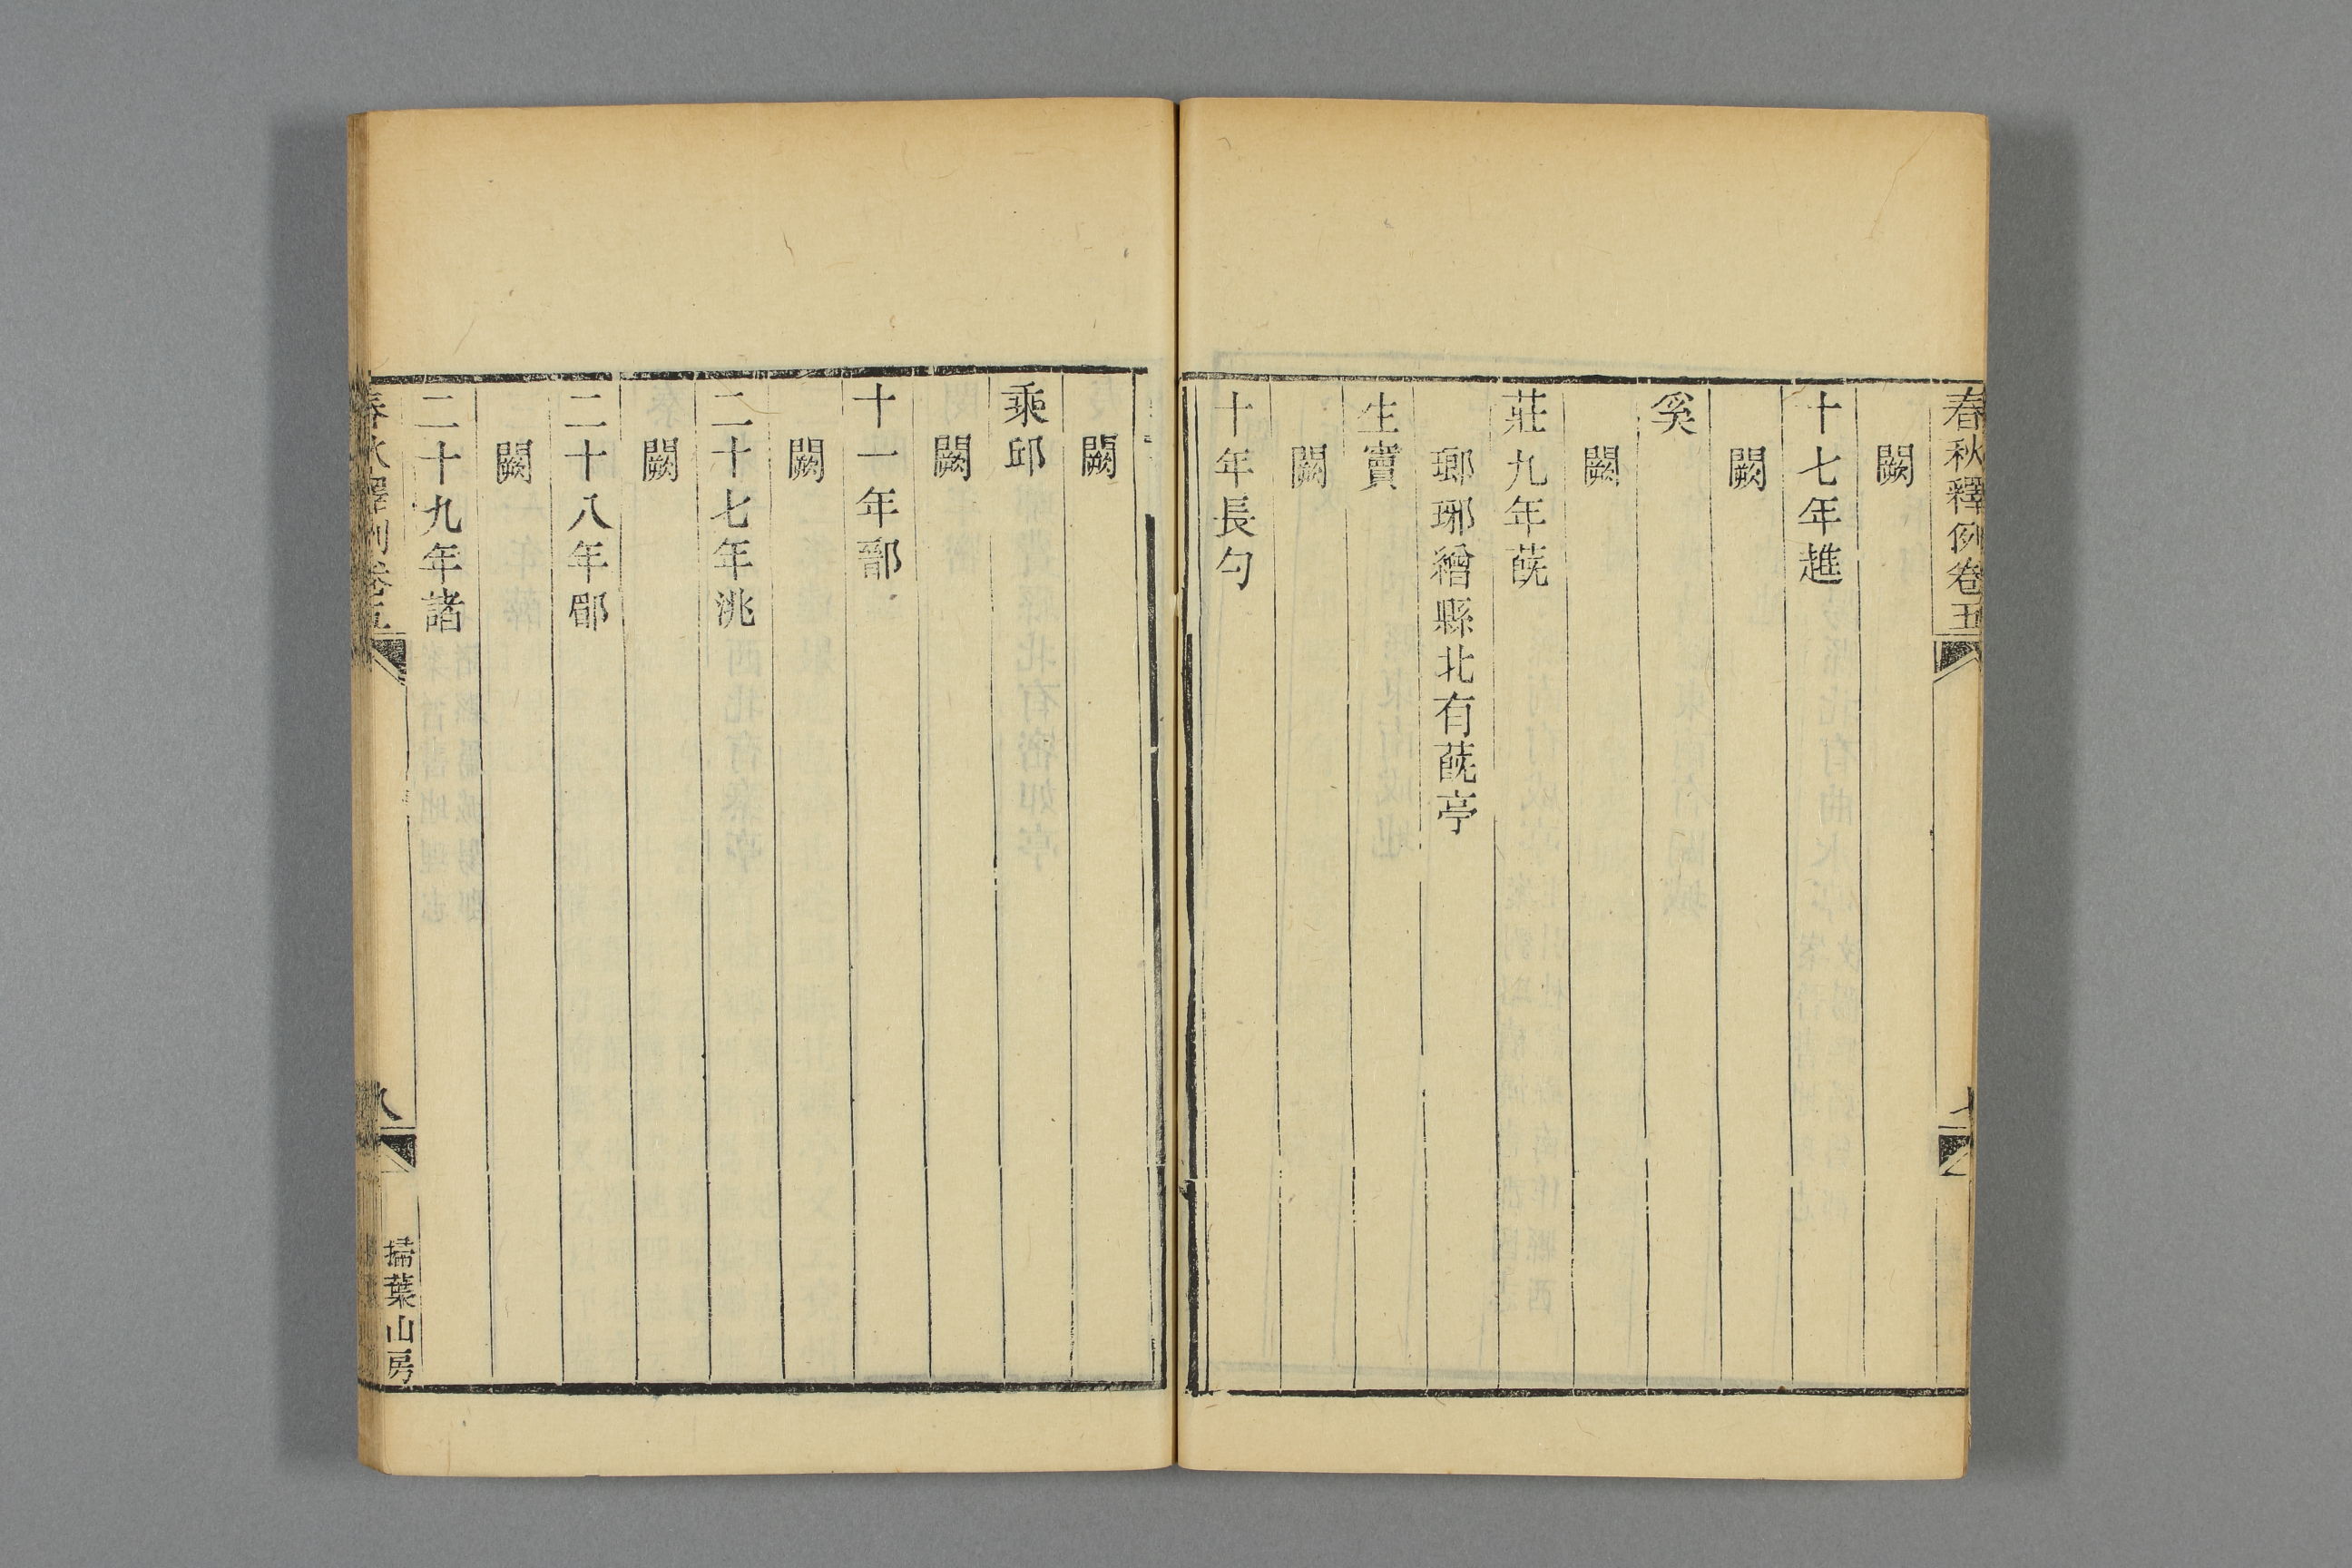 春秋釋例卷五
闕
十七年趡
闕
奚
闕
莊九年蔇
琅琊繒縣北有蔇亭
生竇
闕
十年長勺
闕
乘邱
闕
十一年鄑
闕
二十七年洮
闕
二十八年郿
闕
二十九年諸
春秋釋例卷五
八
掃葉山房